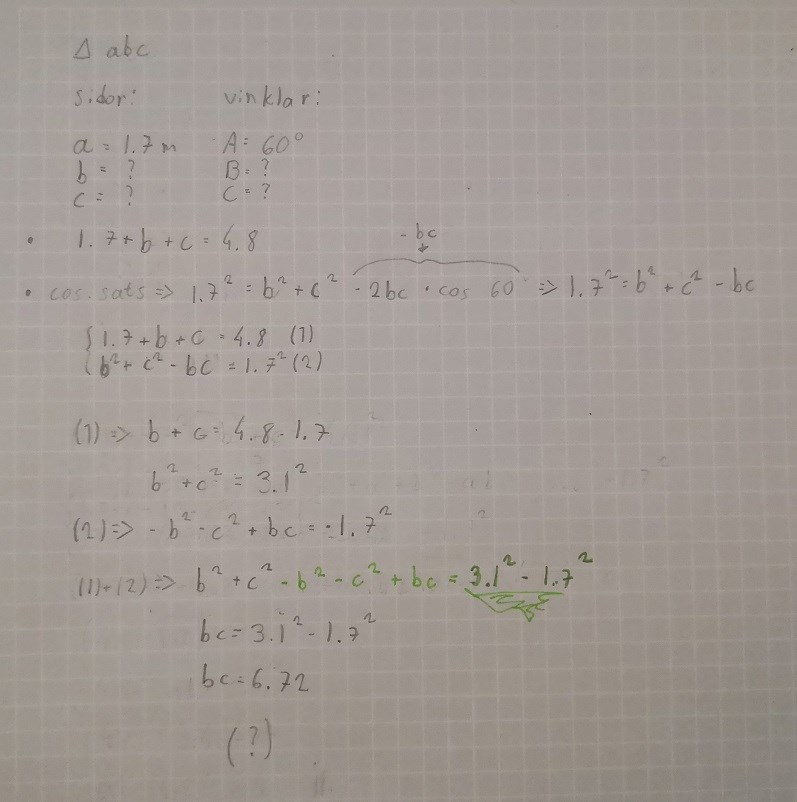 Δ abc
sidor: vinklar:
a = 1.7 m A = 60°
b = ? B = ?
c = ? C = ?
• 1.7 + b + c = 4.8
- bc
• cos. sats => 1.7² = b² + c² - 2bc · cos 60 => 1.7² = b² + c² - bc
{ 1.7 + b + c = 4.8 (1)
b² + c² - bc = 1.7² (2)
(1) => b + c = 4.8 - 1.7
b² + c² = 3.1²
(2) => - b² - c² + bc = - 1.7²
(1)+(2) => b² + c² - b² - c² + bc = 3.1² - 1.7²
bc = 3.1² - 1.7²
bc = 6.72
(?)